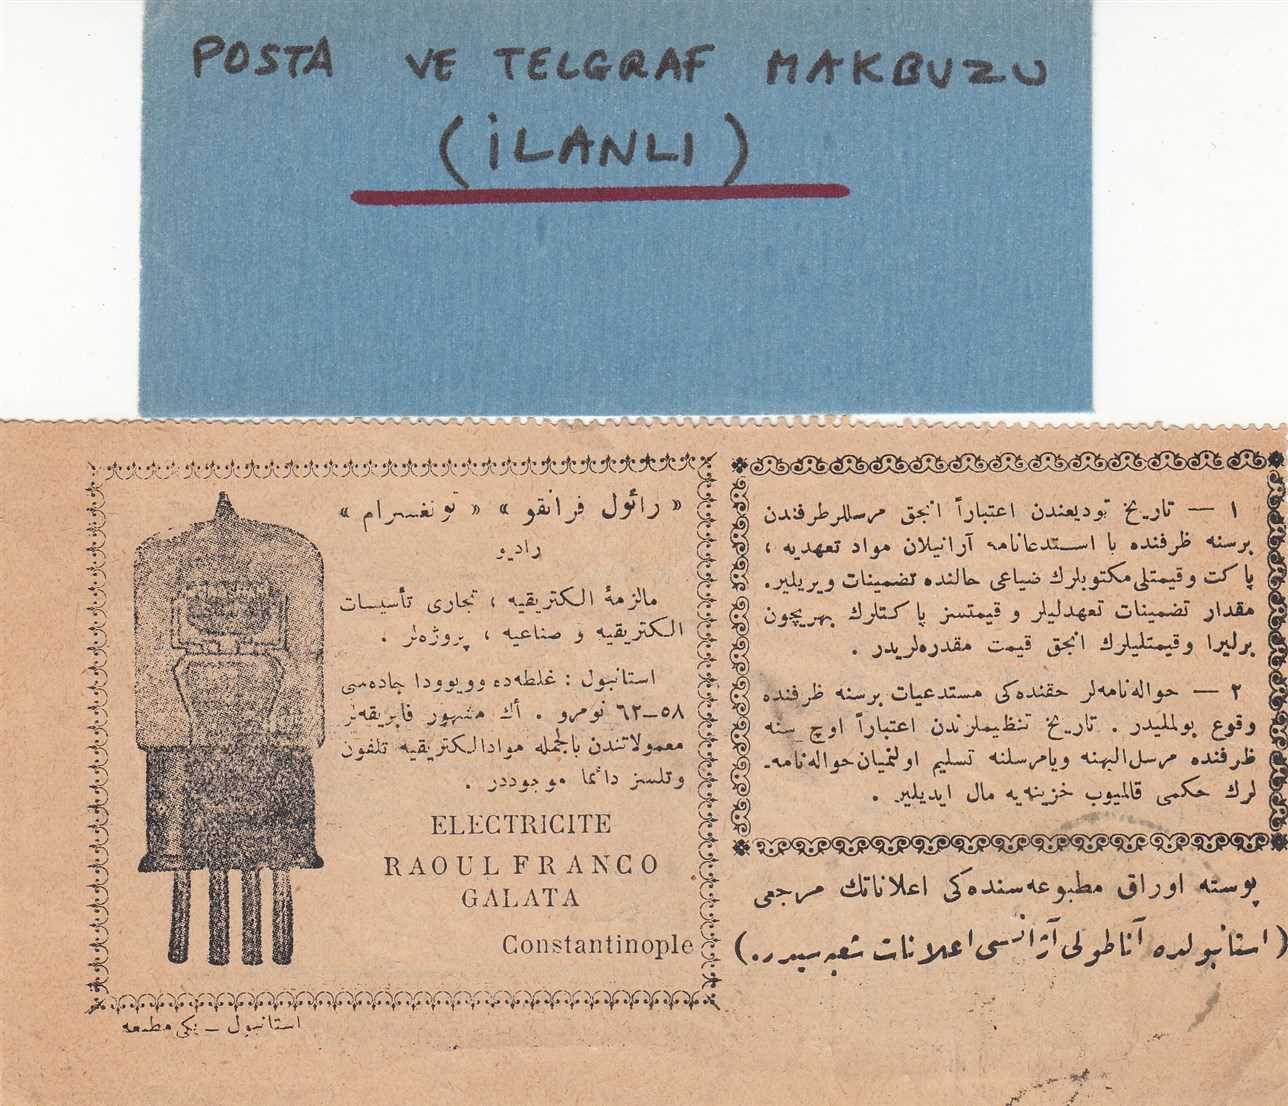 POSTA VE TELGRAF MAKBUZU
(İLANLI)
١ — تاریخ تودیعندن اعتباراً انجق مرسللر طرفندن
برسنه ظرفنده با استدعانامه آرانیلان مواد تعهدیه ،
پاکت وقیمتلی مکتوبلرك ضیاعی حالنده تضمینات ویریلیر.
مقدار تضمینات تعهدلیلر و قیمتسز پاکتلرك بهریچون
برلیرا وقیمتلیلرك انجق قیمت مقدره‌لریدر .
٢ — حواله‌نامه‌لر حقنده‌کی مستدعیات برسنه ظرفنده
وقوع بولملیدر . تاریخ تنظیملرندن اعتباراً اوچ سنه
ظرفنده مرسل‌الیهنه ویامرسلنه تسلیم اولنمیان حواله‌نامه‌-
لرك حکمی قالمیوب خزینه‌یه مال ایدیلیر .
پوسته اوراق مطبوعه‌سنده‌کی اعلاناتك مرجعی
(استانبولده آناطولی آژانسی اعلانات شعبه‌سیدر.)
« رائول فرانقو » « تونغسرام »
رادیو
مالزمهٔ الکتریقیه ، تجاری تأسیسات
الکتریقیه و صناعیه ، پروژه‌لر .
استانبول : غلطه‌ده وویوودا جاده‌سی
٥٨–٦٢ نومرو . اك مشهور فابریقه‌لر
معمولاتندن بالجمله موادالکتریقیه تلفون
وتلسز دائما موجوددر .
ELECTRICITE
RAOUL FRANCO
GALATA
Constantinople
استانبول – یکی مطبعه